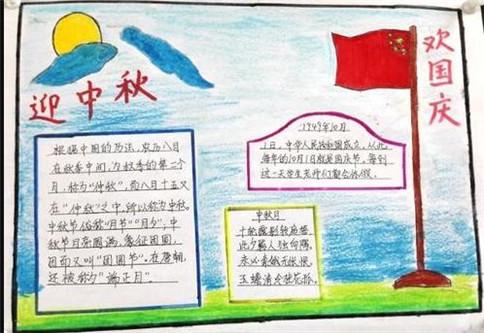 迎中秋
欢国庆
根据中国的历法，农历八月
在秋季中间，为秋季的第二个
月，称为“仲秋”，而八月十五又
在“仲秋”之中，所以称为中秋。
中秋节俗称“月节”“月夕”，中
秋节月亮圆满，象征团圆，
因而又叫“团圆节”，在唐朝，
还被称为“端正月”。
1949年10月
1日，中华人民共和国成立，从此
每年的10月1日就是国庆节，每到
这一天学生老师们都会休假。
中秋月
十轮霜影转庭梧，
此夕羁人独向隅。
未必素娥无怅恨，
玉蟾清冷桂花孤。